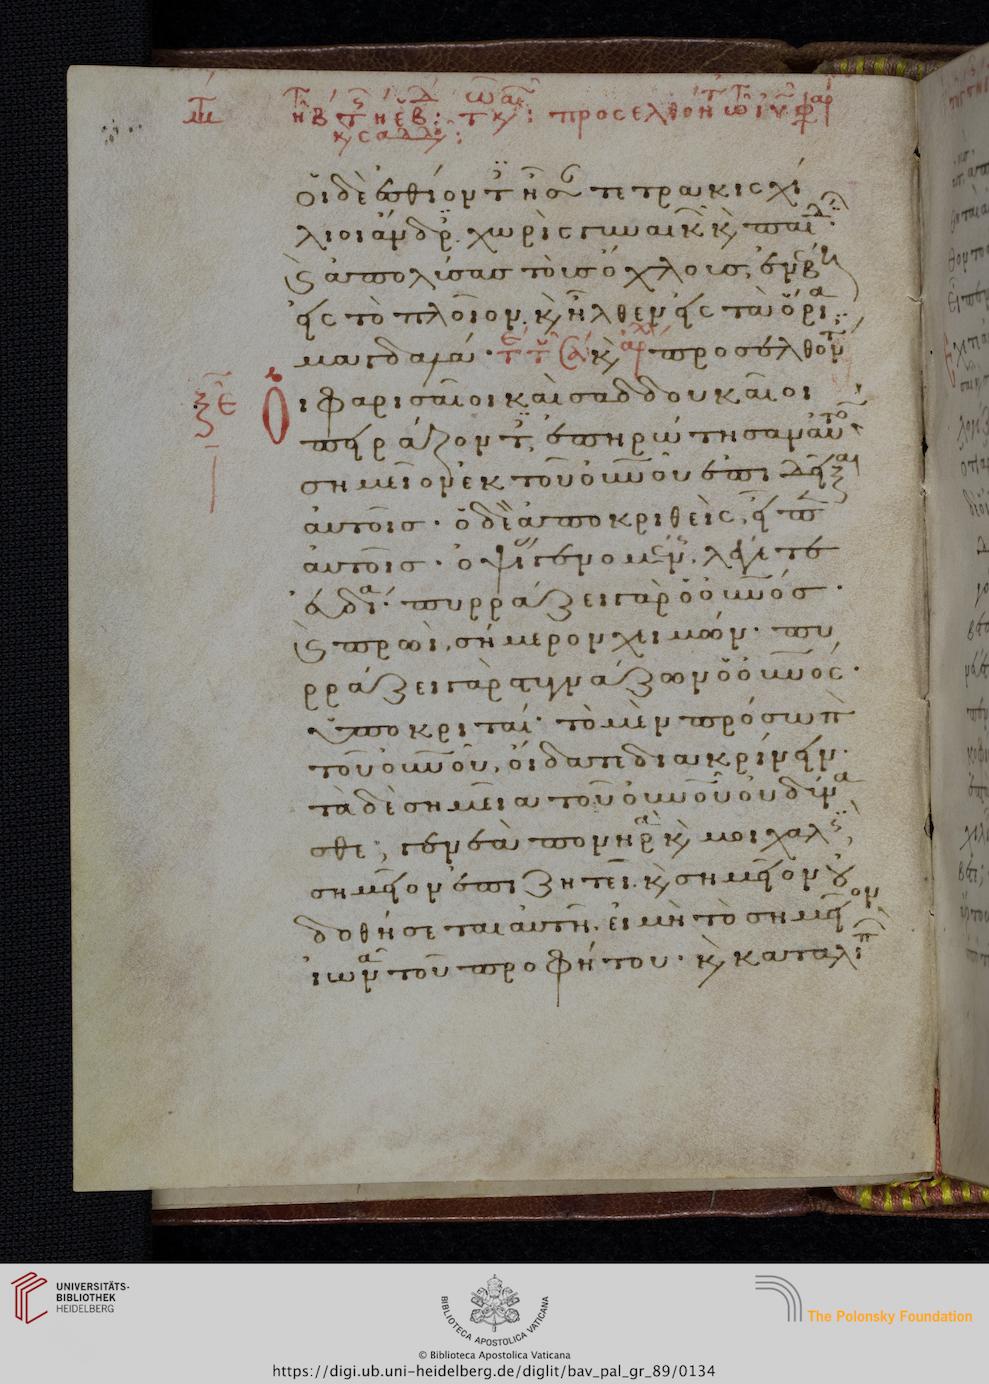 οἱ δὲ ἐσθίοντ ἦσαν τετρακισχί
λιοι ἄνδρ χωρὶς γυναικ κ παιδ
κ ἀπολύσασ τοὺσ ὄχλουσ, ἐνέβη
εἰς τὸ πλοῖον. κ ἦλθεν εἰς τὰ ὅρια
μαγδαλά · κ προσελθοντ
Οἱ φαρισαῖοι καὶ σαδδουκαῖοι
πειράζοντ, ἐπηρώτησαν αὐτὸ
σημεῖον ἐκ τοῦ οὐνοῦ ἐπιδεῖξαι
αὐτοῖσ · ὁ δὲ ἀποκριθεὶς, εἶπ
αὐτοῖσ · ὀψίασ γενομένησ, λέγετε
εὐδία · πυρράζει γὰρ ὁ οὐνόσ ·
κ πρωῒ, σήμερον χειμών · πυ
ρράζει γὰρ στυγνάζων ὁ οὐνός ·
ὑποκριταί · τὸ μὲν πρόσωπὸ
τοῦ οὐνοῦ, οἴδατε διακρίνειν ·
τὰ δὲ σημεῖα τοῦ οὐνοῦ οὐ δύνα
σθε ; γενεὰ πονηρὰ κ μοιχαλὶς,
σημεῖον ἐπιζητεῖ. κ σημεῖον οὐ
δοθήσεται αὐτῆ. εἰ μὴ τὸ σημεῖον
ἰωνᾶ τοῦ προφήτου · κ καταλιπ
UNIVERSITÄTS-
BIBLIOTHEK
HEIDELBERG
BIBLIOTECA APOSTOLICA VATICANA
The Polonsky Foundation
© Biblioteca Apostolica Vaticana
https://digi.ub.uni-heidelberg.de/diglit/bav_pal_gr_89/0134